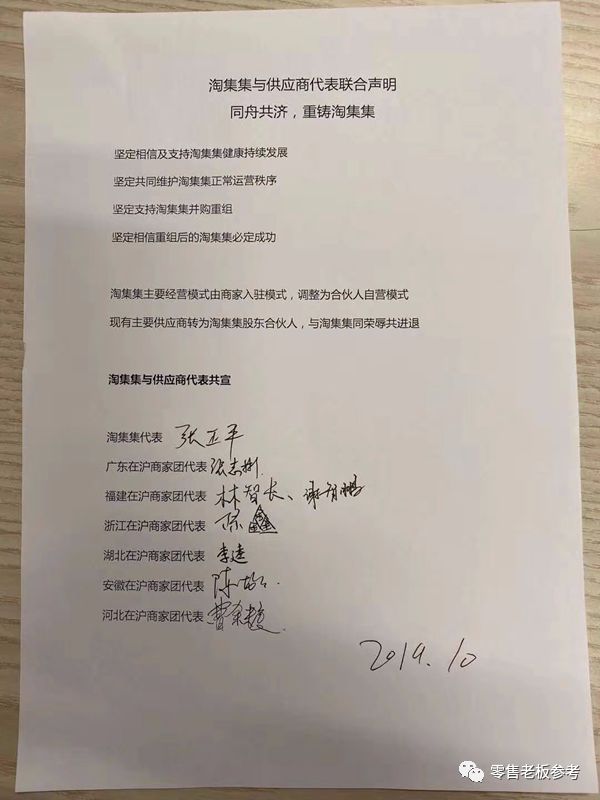 淘集集与供应商代表联合声明
同舟共济，重铸淘集集
坚定相信及支持淘集集健康持续发展
坚定共同维护淘集集正常运营秩序
坚定支持淘集集并购重组
坚定相信重组后的淘集集必定成功
淘集集主要经营模式由商家入驻模式，调整为合伙人自营模式
现有主要供应商转为淘集集股东合伙人，与淘集集同荣辱共进退
淘集集与供应商代表共宣
淘集集代表 张正平
广东在沪商家团代表
福建在沪商家团代表 林智长、
浙江在沪商家团代表 陈鑫
湖北在沪商家团代表 李远
安徽在沪商家团代表 陈
河北在沪商家团代表 曹
2019.10
零售老板参考